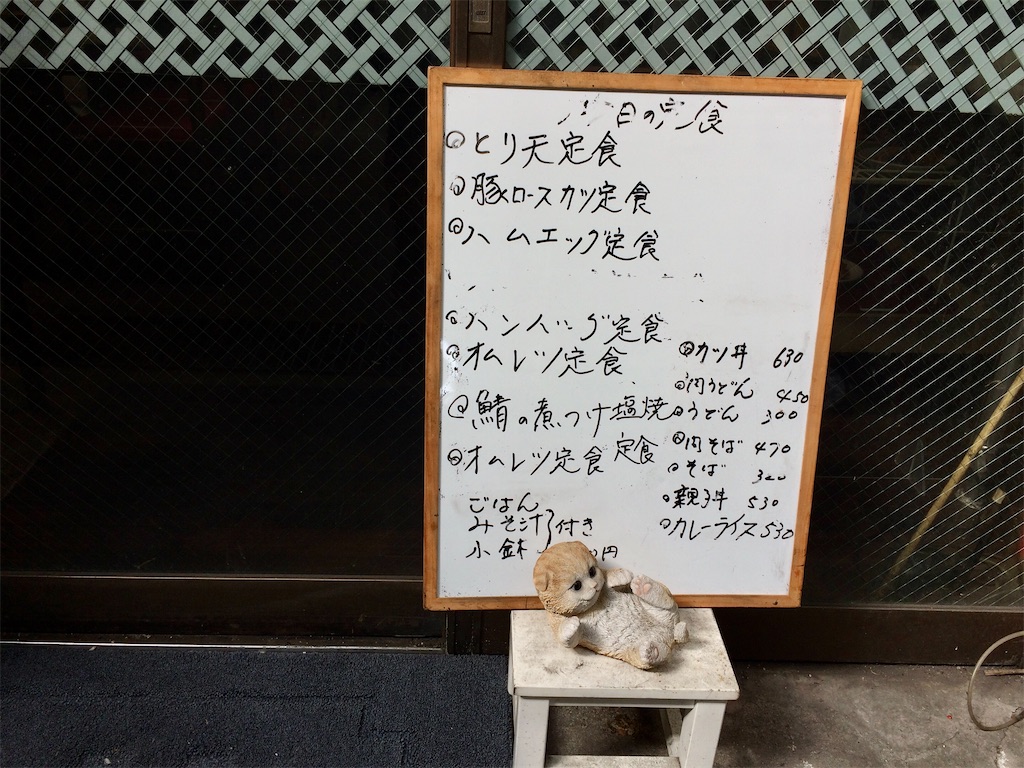 日の定食
とり天定食
豚ロースカツ定食
ハムエッグ定食
ハンバーグ定食
オムレツ定食
鯖の煮つけ塩焼
オムレツ定食 定食
ごはん
みそ汁 付き
小鉢 円
カツ丼 630
肉うどん 450
うどん 300
肉そば 470
そば 320
親子丼 530
カレーライス 530